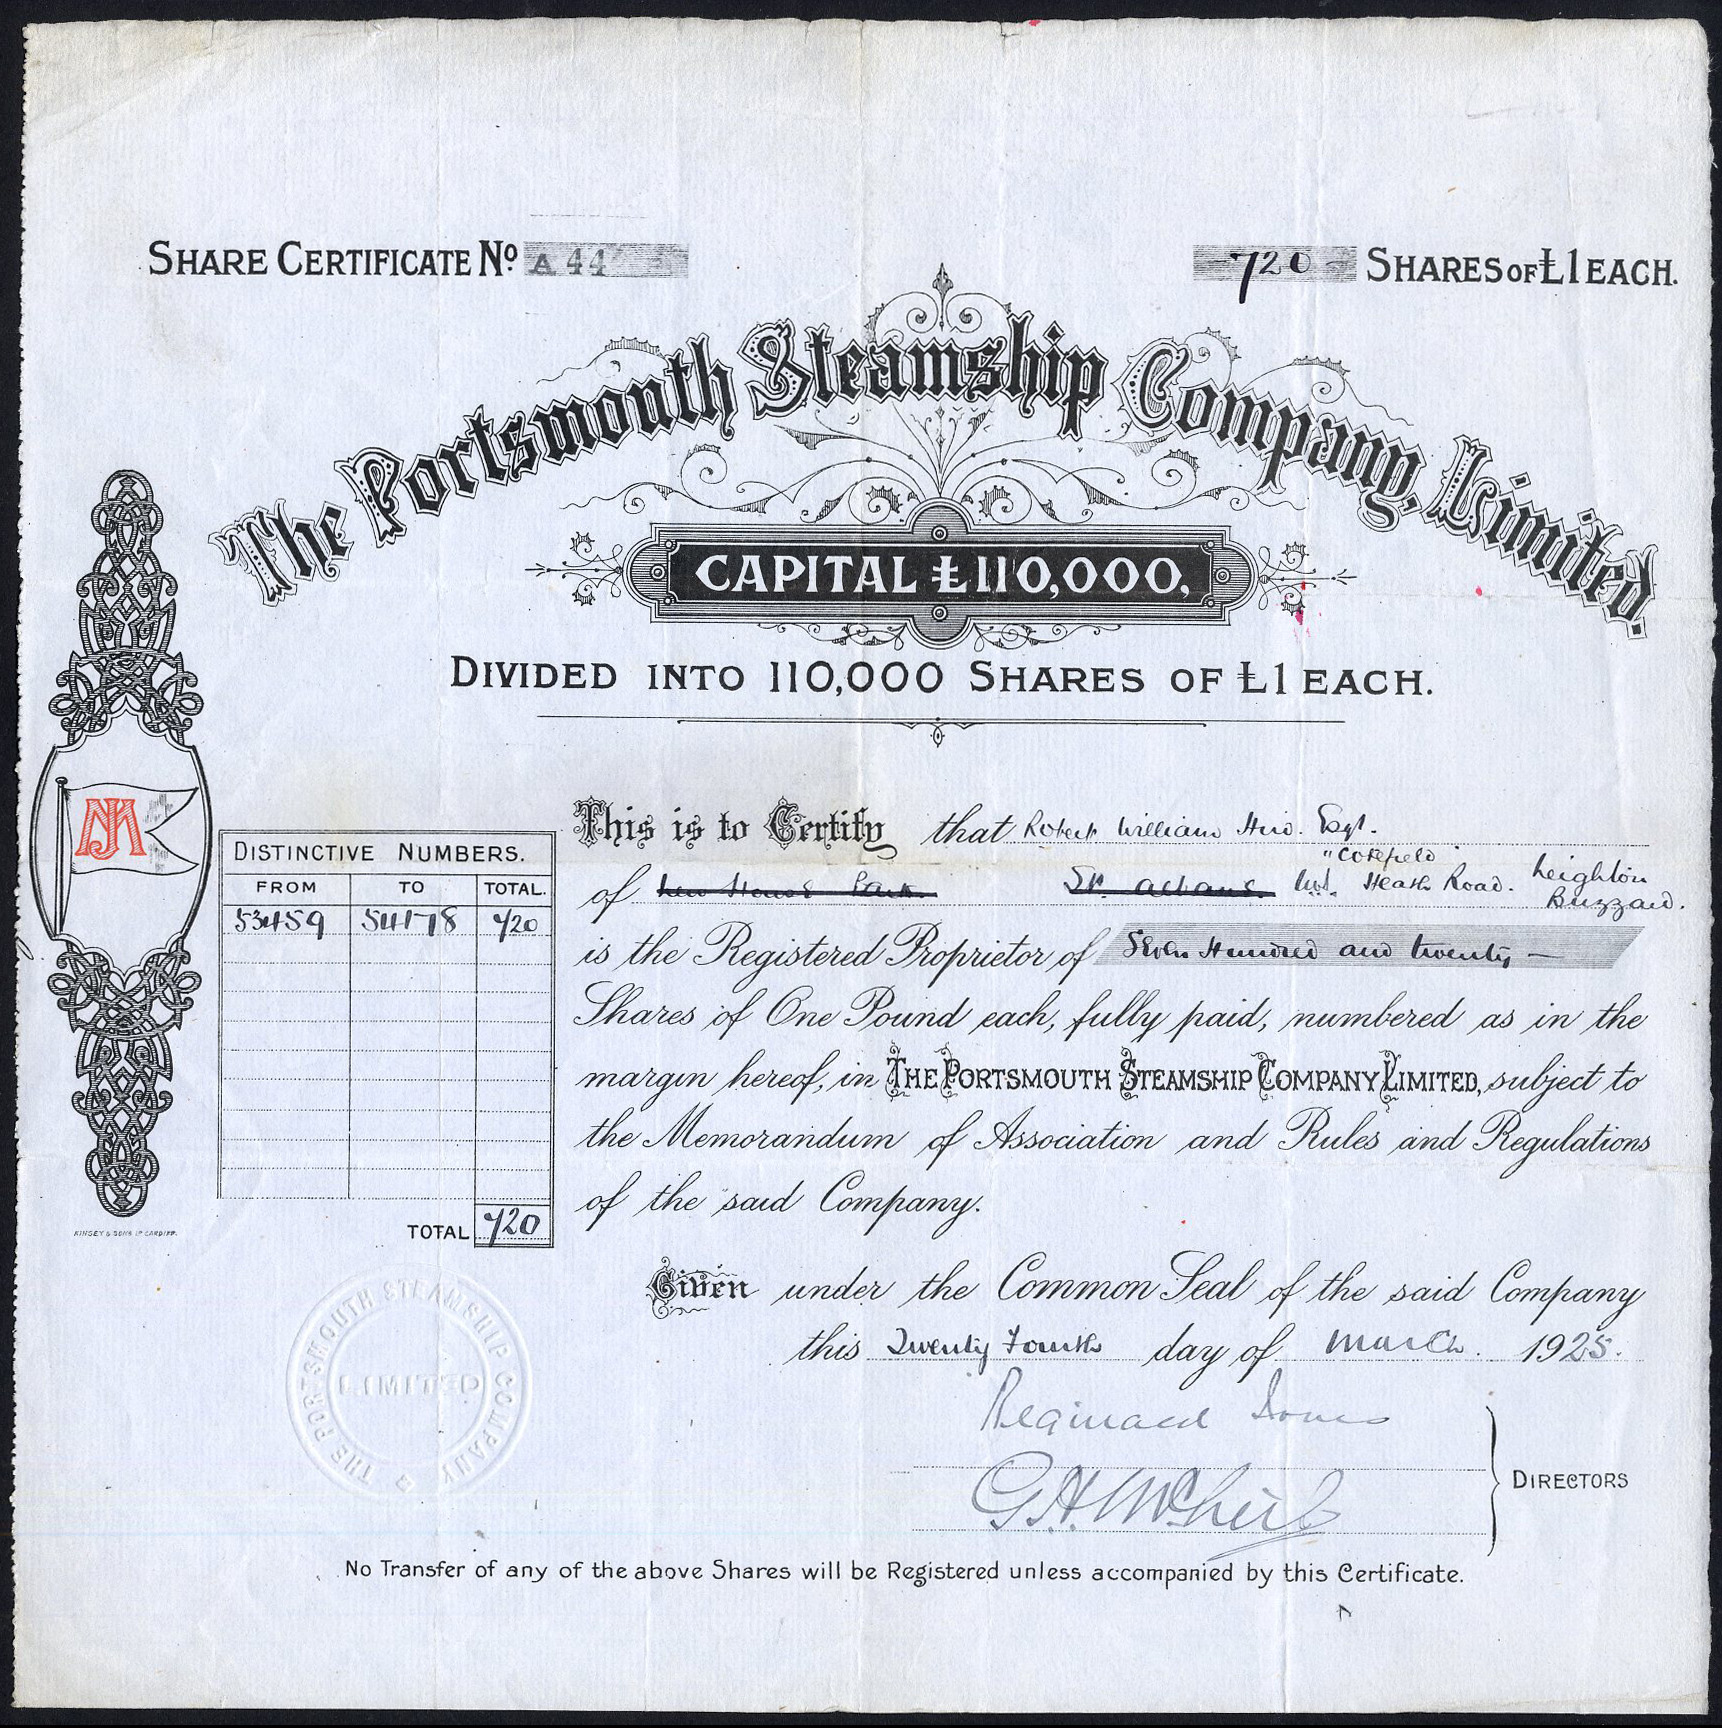 SHARE CERTIFICATE No. A 44
720 SHARES OF £1 EACH.
The Portsmouth Steamship Company, Limited.
CAPITAL £110,000,
DIVIDED INTO 110,000 SHARES OF £1 EACH.
JM
This is to Certify that Robert William Esqr.
"
of New House Park St. Albans. Heath Road. Leighton Buzzard.
is the Registered Proprietor of Seven Hundred and twenty —
Shares of One Pound each, fully paid, numbered as in the
margin hereof, in THE PORTSMOUTH STEAMSHIP COMPANY LIMITED, subject to
the Memorandum of Association and Rules and Regulations
of the said Company.
DISTINCTIVE NUMBERS.
FROM TO TOTAL.
53459 54178 720
TOTAL 720
KINSEY & SONS LD CARDIFF.
Given under the Common Seal of the said Company
this Twenty Fourth day of March. 1925.
THE PORTSMOUTH STEAMSHIP COMPANY
LIMITED
Reginald
G.H.
DIRECTORS
No Transfer of any of the above Shares will be Registered unless accompanied by this Certificate.